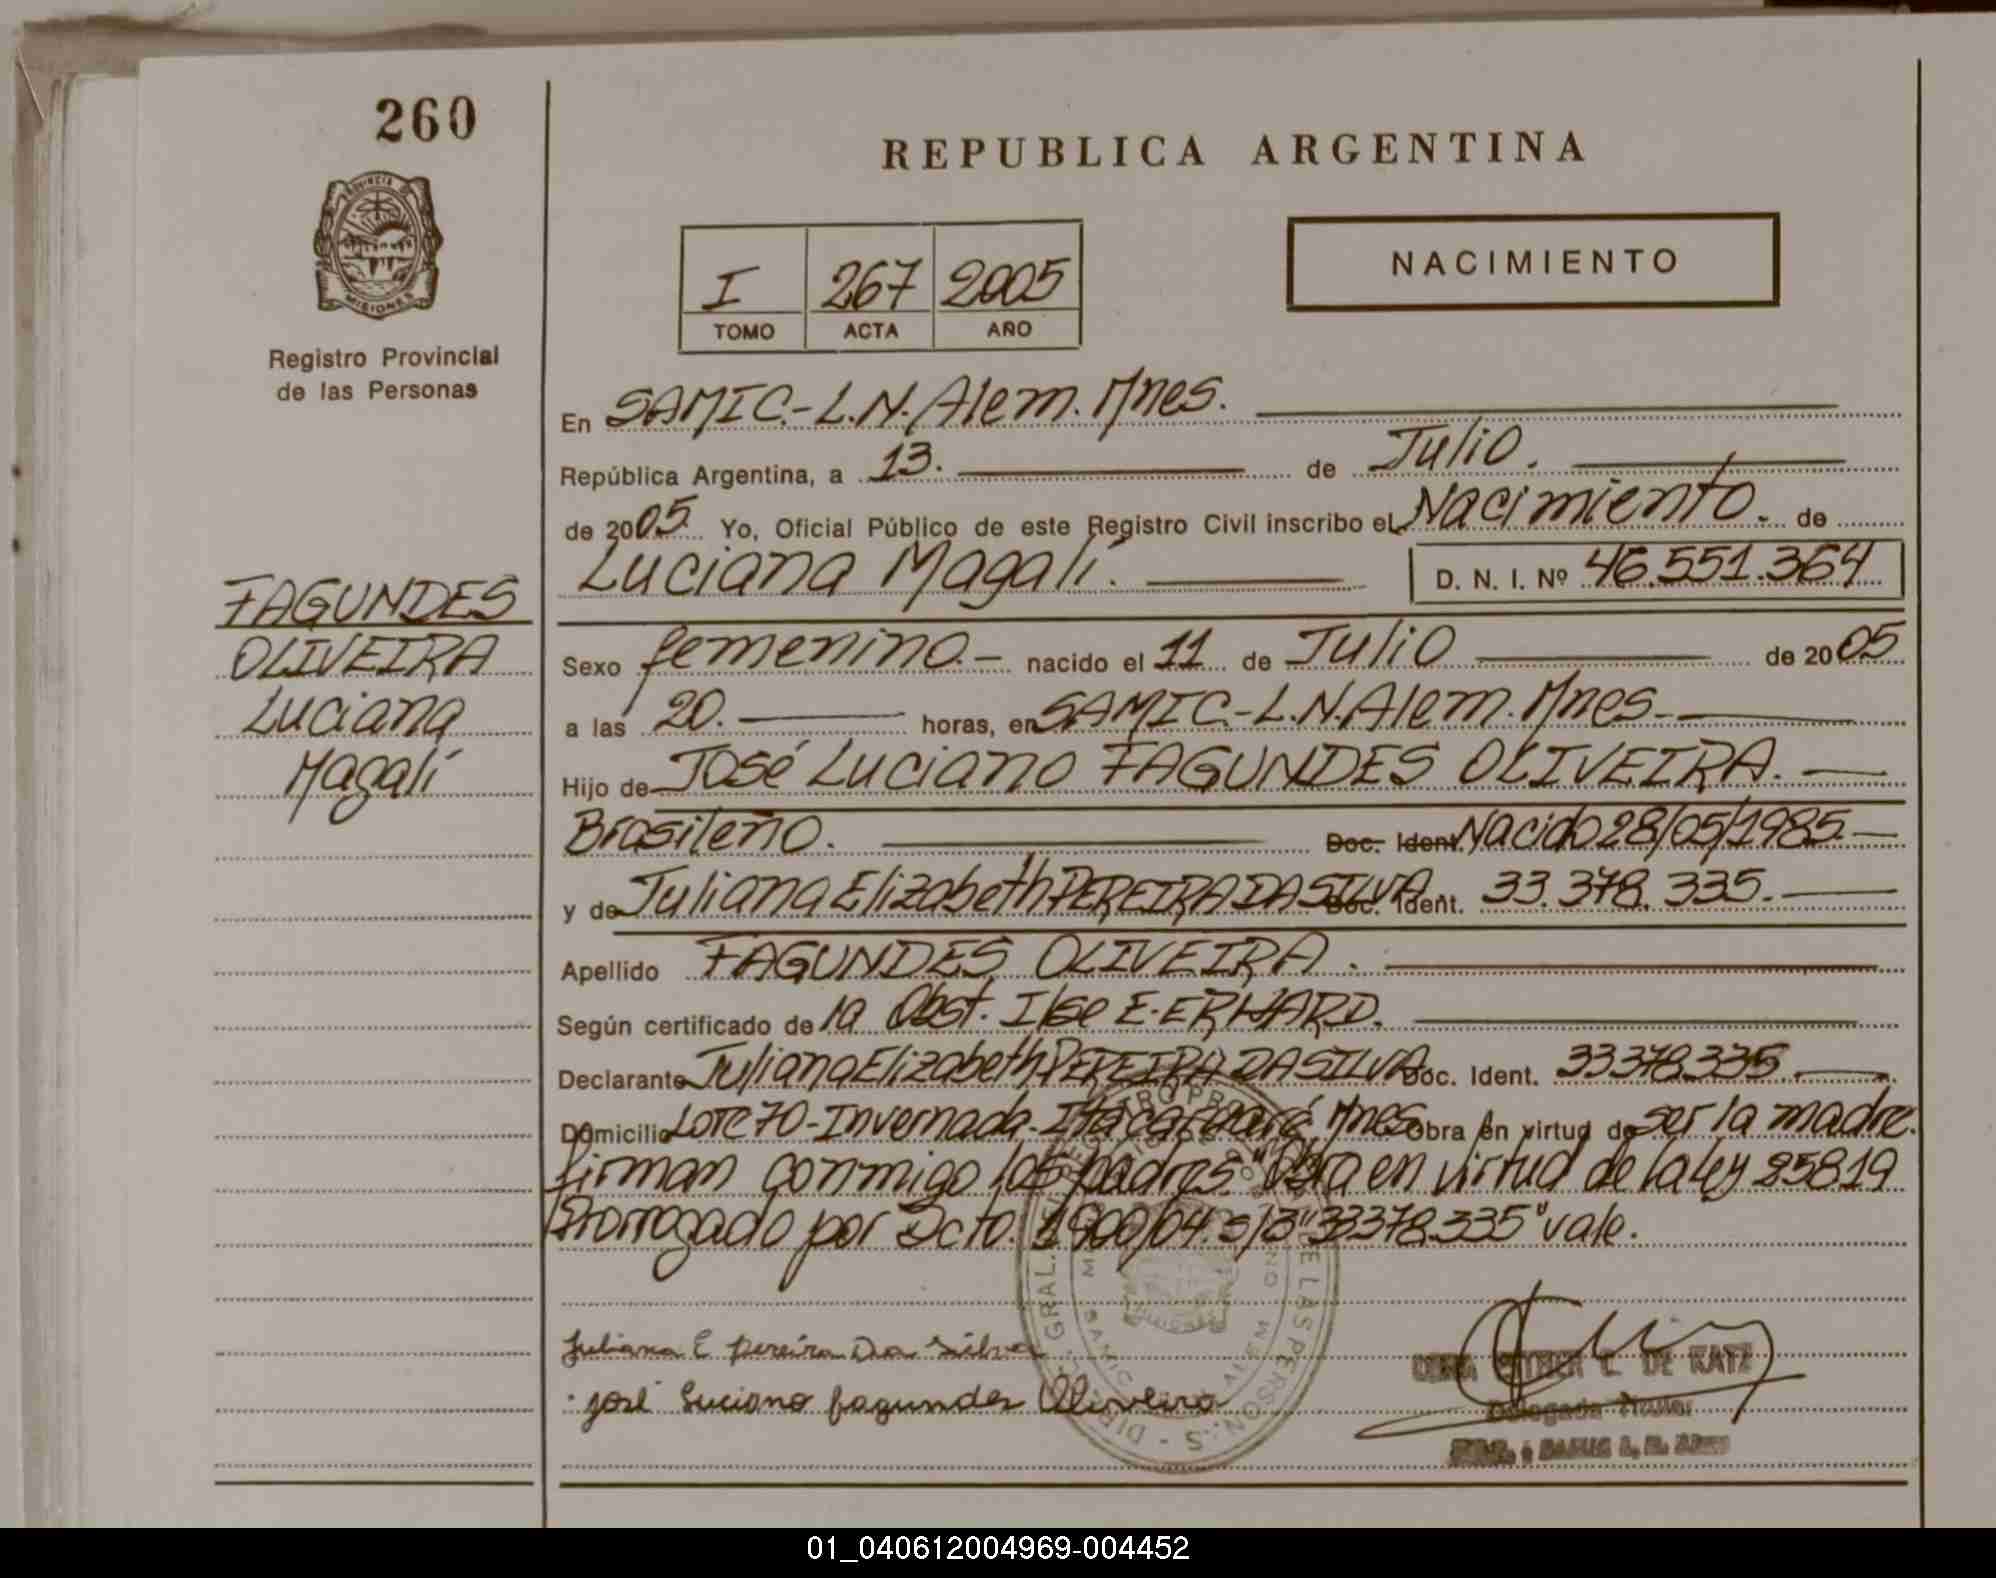 260
REPUBLICA ARGENTINA
PROVINCIA DE
MISIONES
I 267 2005
TOMO ACTA AÑO
NACIMIENTO
Registro Provincial
de las Personas
En SAMIC.-L.N.Alem.Mnes.
República Argentina, a 13. de Julio.
de 2005. Yo, Oficial Público de este Registro Civil inscribo el Nacimiento. de
Luciana Magalí. D. N. I. Nº 46.551.364
FAGUNDES
OLIVEIRA
Luciana
Magalí
Sexo femenino.- nacido el 11 de Julio de 2005
a las 20. horas, en SAMIC.-L.N.Alem.Mnes.
Hijo de José Luciano FAGUNDES OLIVEIRA.
Brasileño. Doc. Ident. Nacido 28/05/1985.
y de Juliana Elizabeth PEREIRA DA SILVA Doc. Ident. 33.378.335.
Apellido FAGUNDES OLIVEIRA.
Según certificado de la Obst. Ilse E. ERHARD.
Declarante Juliana Elizabeth PEREIRA DA SILVA Doc. Ident. 33378335.
Domicilio Lote 70-Invernada. Itacaruaré Mnes Obra en virtud de ser la madre.
firman conmigo los padres. "Obra en virtud de la Ley 25819
Prorrogado por Dcto. 1900/04. s/3 "33378335" vale.
Juliana E Pereira Da Silva
José Luciano fagundes Oliveira
DE KATZ
Delegada Titular
01_040612004969-004452